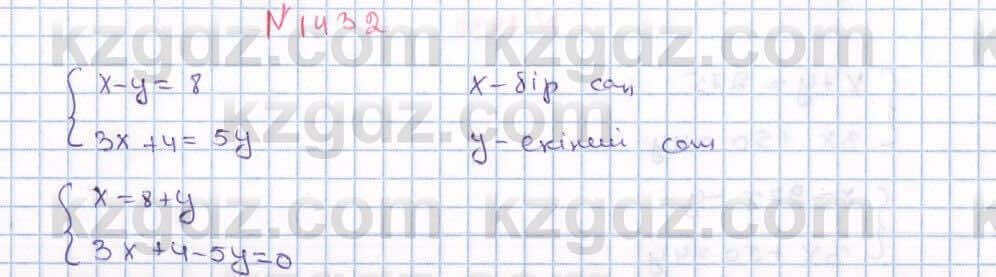 №1432
x-y=8 x-бір сан
3x+4=5y y-екінші сан
x=8+y
3x+4-5y=0
kzgdz.com kzgdz.com
kzgdz.com
kzgdz.com kzgdz.com